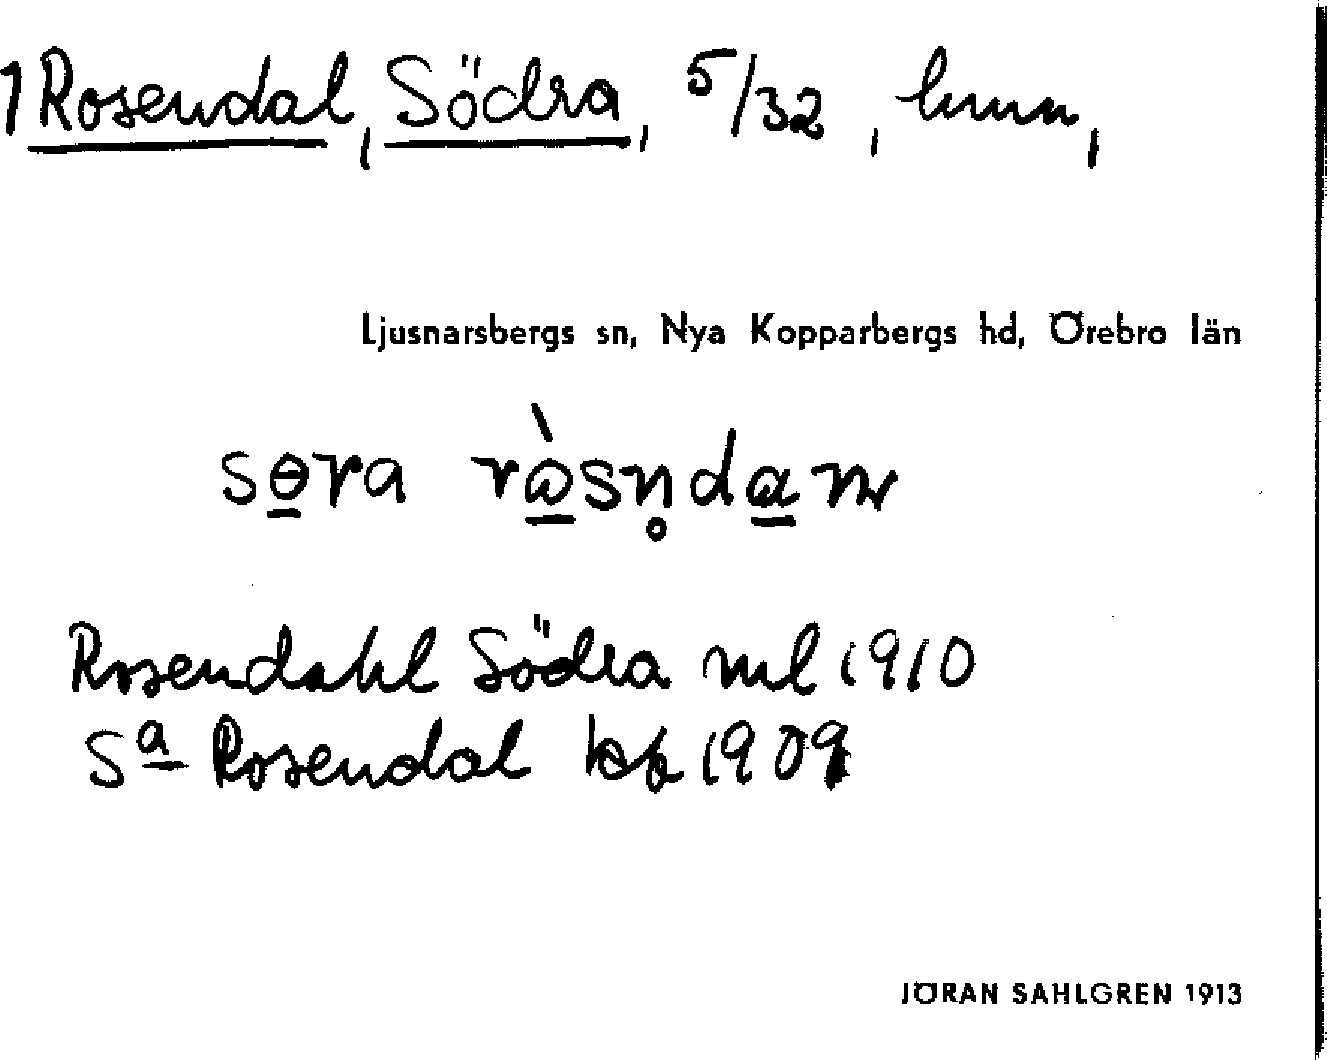 1 Rosendal, Södra, 5/32, hmn,
Ljusnarsbergs sn, Nya Kopparbergs hd, Örebro län
Rosendahl Södra ml 1910
Sa Rosendal kb 1909
JÖRAN SAHLGREN 1913